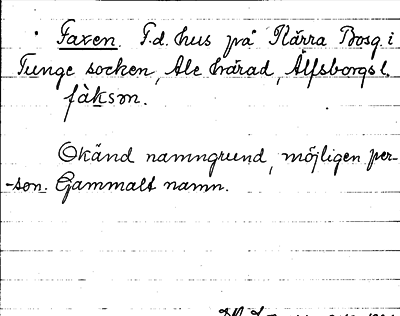 Faxen. F.d. hus på Kärra Bosg. i
Tunge socken, Ale härad, Älfsborgs l.
fàksən.
Okänd namngrund, möjligen per-
-son. Gammalt namn.